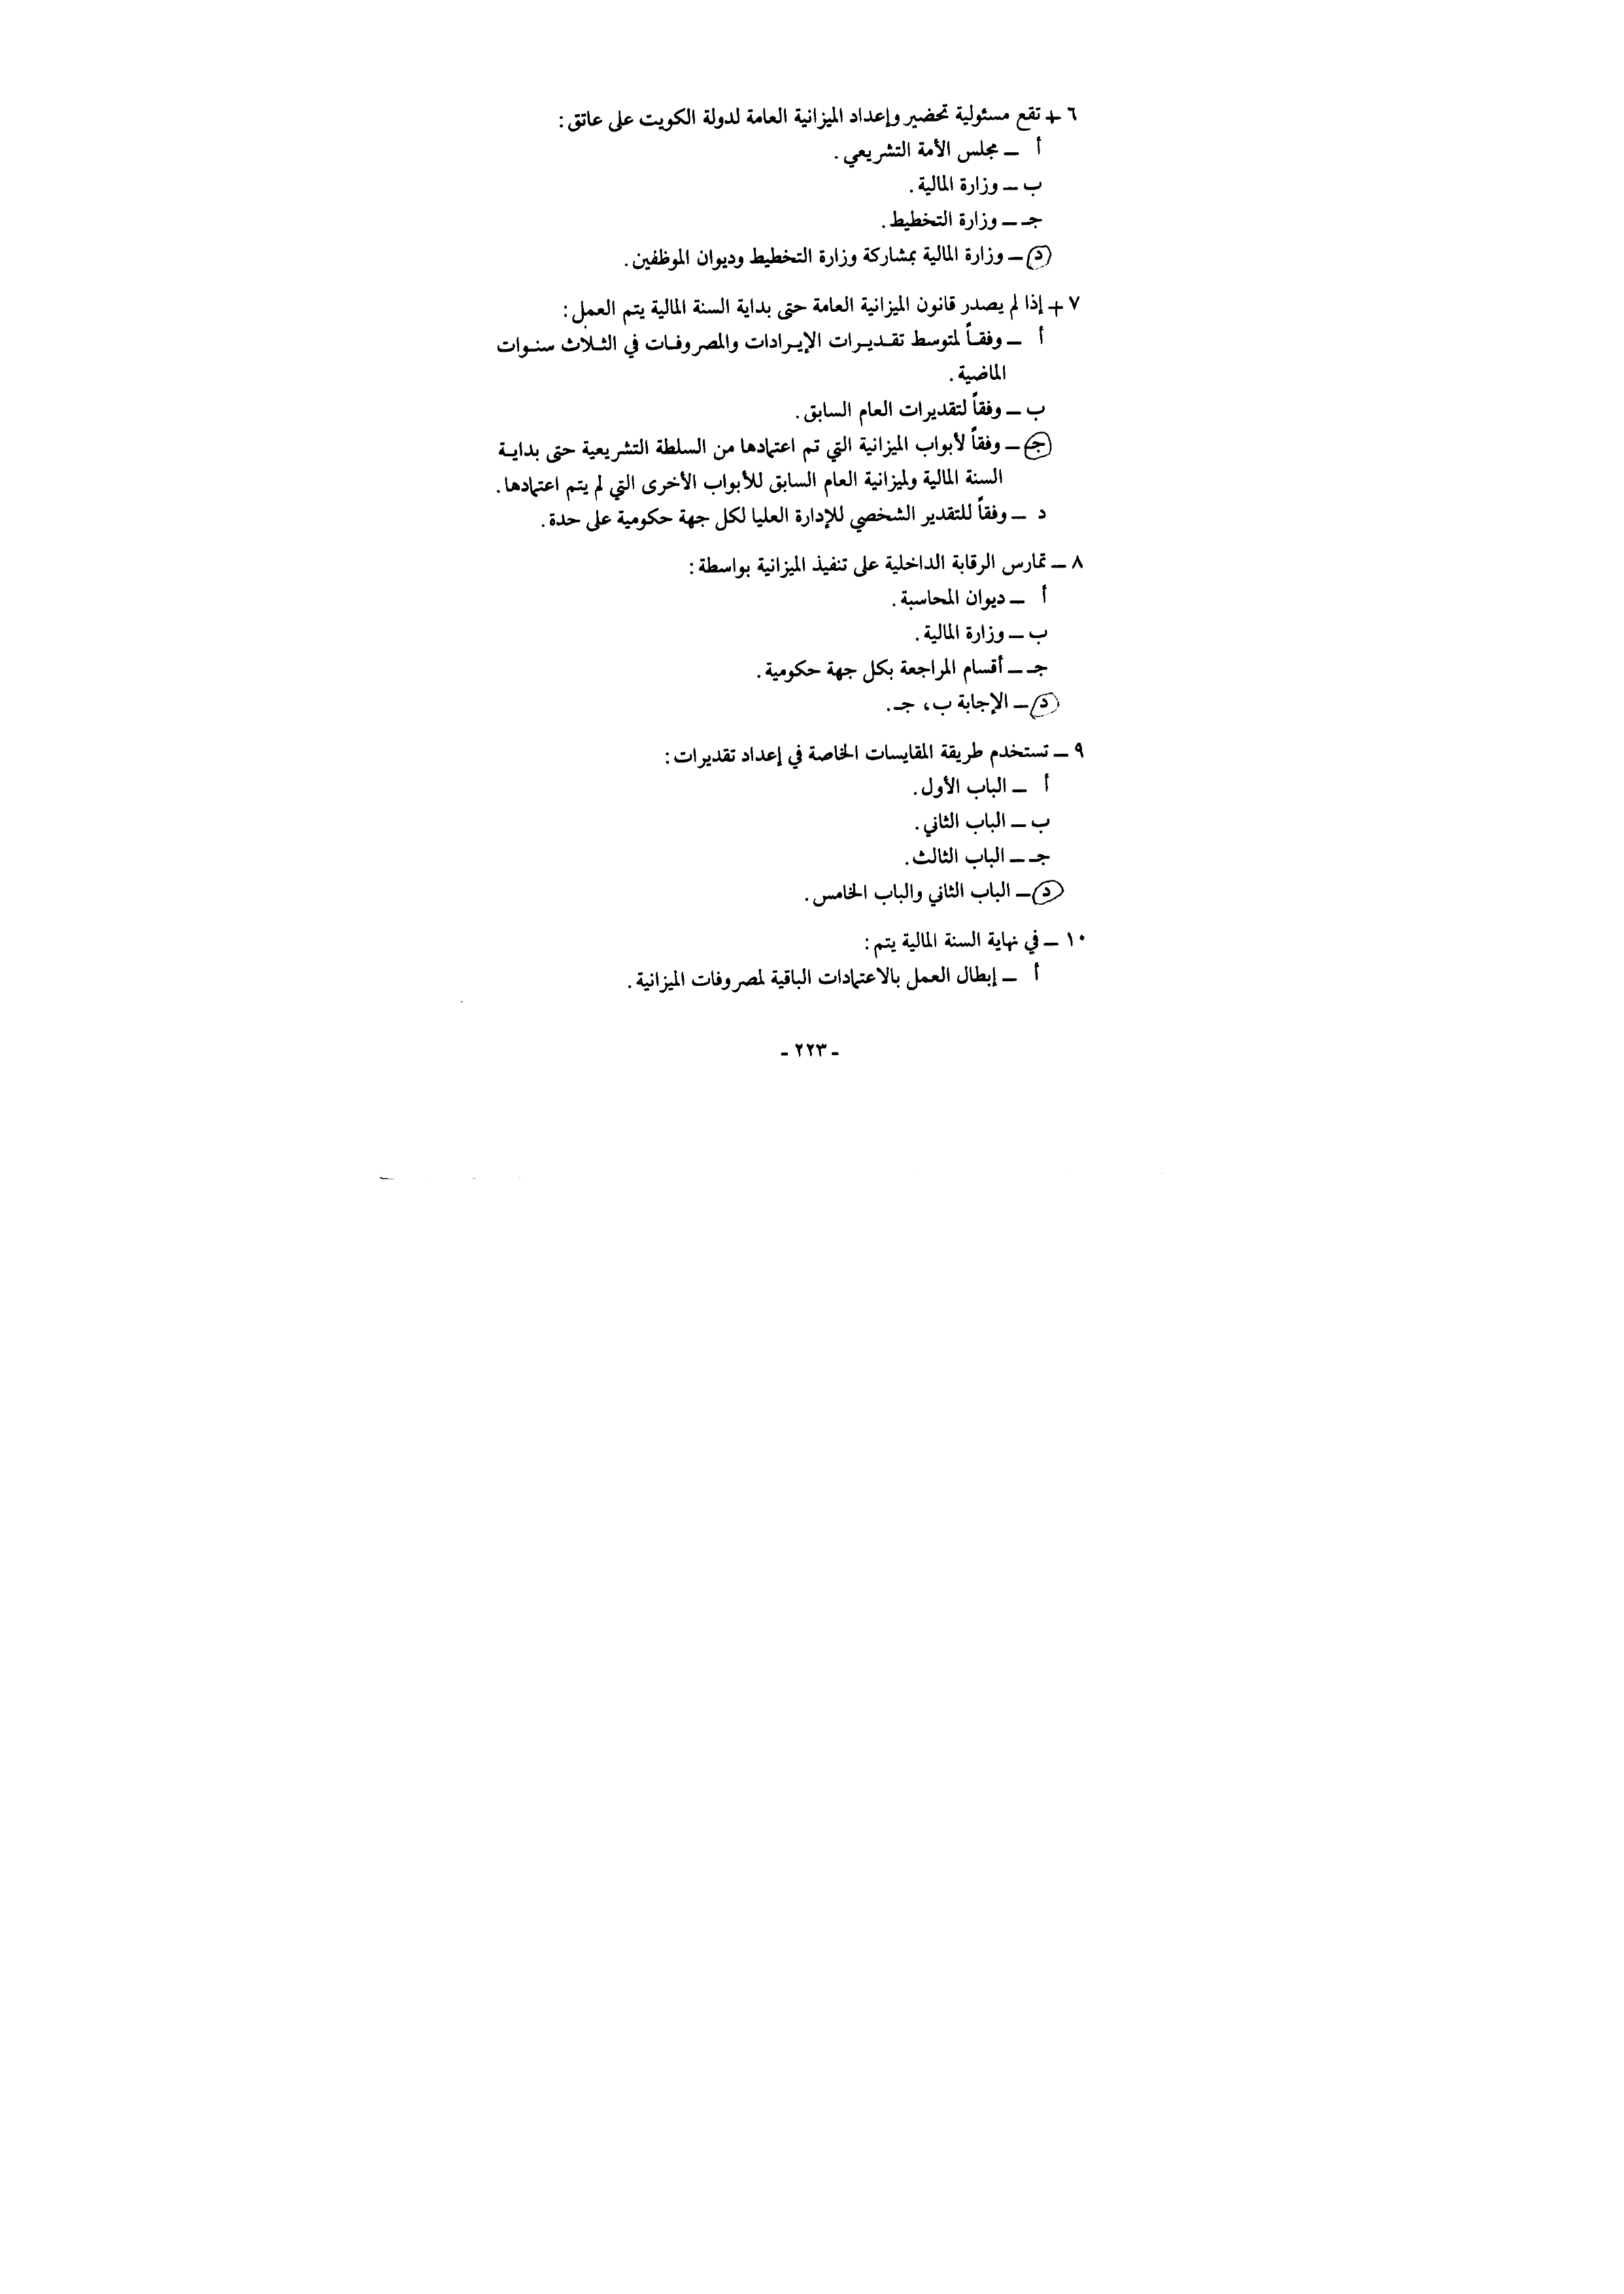 ٦ + تقع مسئولية تحضير وإعداد الميزانية العامة لدولة الكويت على عاتق:
أ ــ مجلس الأمة التشريعي.
ب ــ وزارة المالية.
جـ ــ وزارة التخطيط.
د ــ وزارة المالية بمشاركة وزارة التخطيط وديوان الموظفين.
٧ + إذا لم يصدر قانون الميزانية العامة حتى بداية السنة المالية يتم العمل:
أ ــ وفقـاً لمتوسط تقـديـرات الإيـرادات والمصروفـات في الثـلاث سنـوات
الماضية.
ب ــ وفقاً لتقديرات العام السابق.
جـ ــ وفقاً لأبواب الميزانية التي تم اعتمادها من السلطة التشريعية حتى بدايـة
السنة المالية ولميزانية العام السابق للأبواب الأخرى التي لم يتم اعتمادها.
د ــ وفقاً للتقدير الشخصي للإدارة العليا لكل جهة حكومية على حدة.
٨ ــ تمارس الرقابة الداخلية على تنفيذ الميزانية بواسطة:
أ ــ ديوان المحاسبة.
ب ــ وزارة المالية.
جـ ــ أقسام المراجعة بكل جهة حكومية.
د ــ الإجابة ب، جـ.
٩ ــ تستخدم طريقة المقايسات الخاصة في إعداد تقديرات:
أ ــ الباب الأول.
ب ــ الباب الثاني.
جـ ــ الباب الثالث.
د ــ الباب الثاني والباب الخامس.
١٠ ــ في نهاية السنة المالية يتم:
أ ــ إبطال العمل بالاعتمادات الباقية لمصروفات الميزانية.
ـ ٢٢٣ ـ